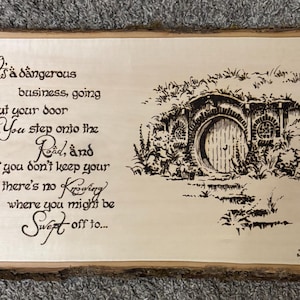 It's a dangerous
business, going
out your door
You step onto the
Road, and
if you don't keep your
there's no Knowing
where you might be
Swept off to...